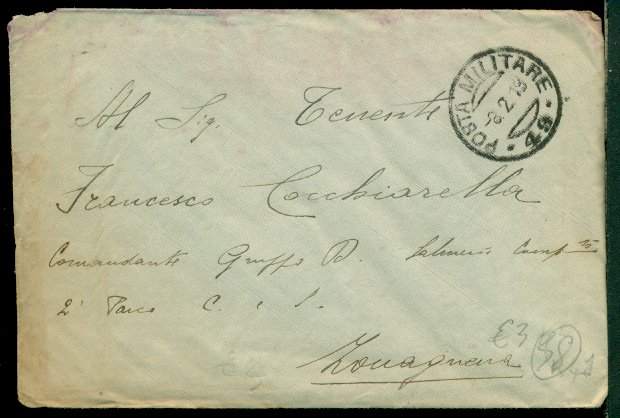 POSTA MILITARE
8.2.19
49
Al Sig. Tenente
Francesco Cecchiarella
Comandante Gruppo B.
2ª Parco C.
Zouagneux
€3